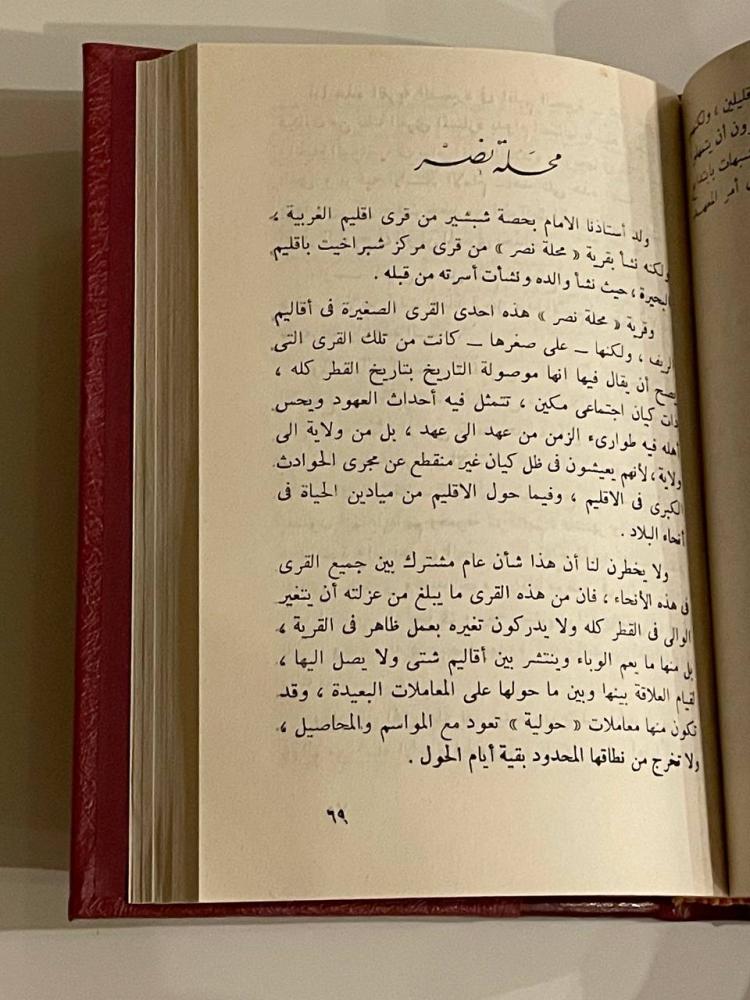 محلة نصر
ولد أستاذنا الامام بحصة شبشير من قرى اقليم الغربية ،
ولكنه نشأ بقرية « محلة نصر » من قرى مركز شبراخيت باقليم
البحيرة ، حيث نشأ والده ونشأت أسرته من قبله .
وقرية « محلة نصر » هذه احدى القرى الصغيرة فى أقاليم
الريف ، ولكنها – على صغرها – كانت من تلك القرى التى
يصح أن يقال فيها انها موصولة التاريخ بتاريخ القطر كله ،
ذات كيان اجتماعى مكين ، تتمثل فيه أحداث العهود ويحس
أهله فيه طوارىء الزمن من عهد الى عهد ، بل من ولاية الى
ولاية ، لأنهم يعيشون فى ظل كيان غير منقطع عن مجرى الحوادث
الكبرى فى الاقليم ، وفيما حول الاقليم من ميادين الحياة فى
أنحاء البلاد .
ولا يخطرن لنا أن هذا شأن عام مشترك بين جميع القرى
فى هذه الأنحاء ، فان من هذه القرى ما يبلغ من عزلته أن يتغير
الوالى فى القطر كله ولا يدركون تغيره بعمل ظاهر فى القرية ،
بل منها ما يعم الوباء وينتشر بين أقاليم شتى ولا يصل اليها ،
لقيام العلاقة بينها وبين ما حولها على المعاملات البعيدة ، وقد
تكون منها معاملات « حولية » تعود مع المواسم والمحاصيل ،
ولا تخرج من نطاقها المحدود بقية أيام الحول .
٦٩
أمر